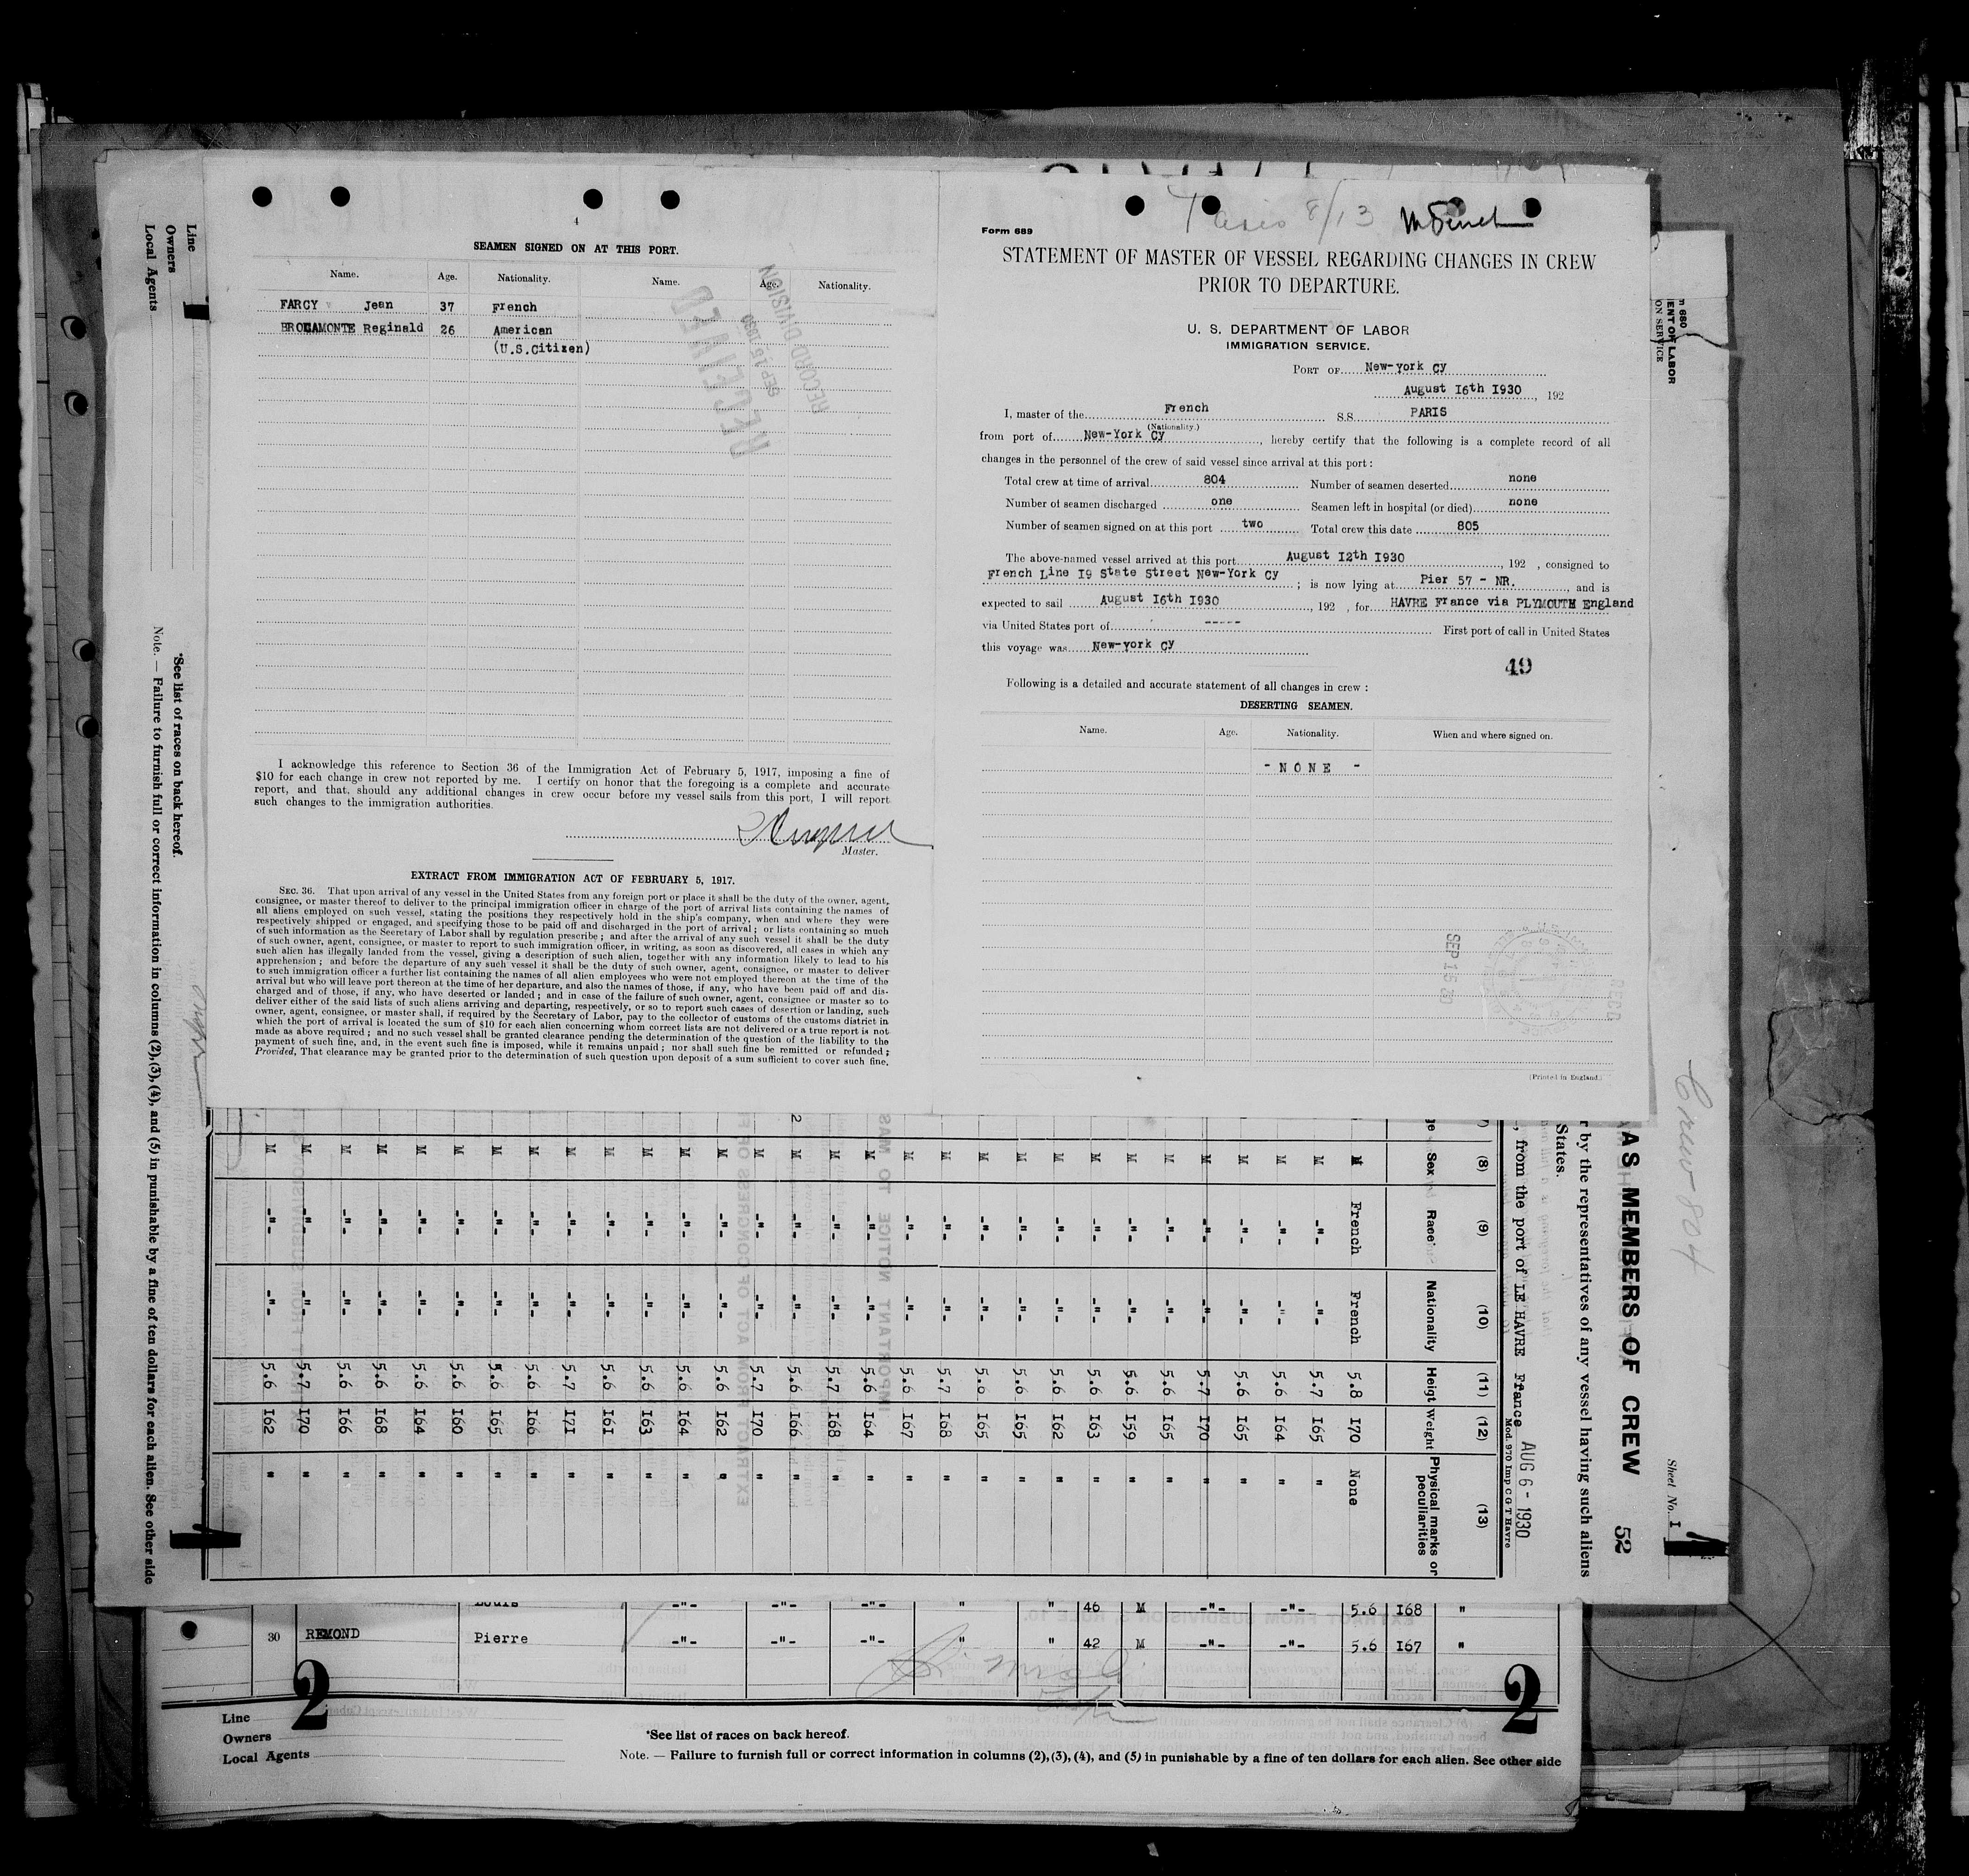 4
SEAMEN SIGNED ON AT THIS PORT.
Name. Age. Nationality. Name. Age. Nationality.
FARCY Jean 37 French
BROCAMONTE Reginald 26 American
(U.S.Citizen)
RECEIVED
SEP 15 1930
RECORD DIVISION
I acknowledge this reference to Section 36 of the Immigration Act of February 5, 1917, imposing a fine of
$10 for each change in crew not reported by me. I certify on honor that the foregoing is a complete and accurate
report, and that, should any additional changes in crew occur before my vessel sails from this port, I will report
such changes to the immigration authorities.
Master.
EXTRACT FROM IMMIGRATION ACT OF FEBRUARY 5, 1917.
SEC. 36. That upon arrival of any vessel in the United States from any foreign port or place it shall be the duty of the owner, agent,
consignee, or master thereof to deliver to the principal immigration officer in charge of the port of arrival lists containing the names of
all aliens employed on such vessel, stating the positions they respectively hold in the ship's company, when and where they were
respectively shipped or engaged, and specifying those to be paid off and discharged in the port of arrival; or lists containing so much
of such information as the Secretary of Labor shall by regulation prescribe; and after the arrival of any such vessel it shall be the duty
of such owner, agent, consignee, or master to report to such immigration officer, in writing, as soon as discovered, all cases in which any
such alien has illegally landed from the vessel, giving a description of such alien, together with any information likely to lead to his
apprehension; and before the departure of any such vessel it shall be the duty of such owner, agent, consignee, or master to deliver
to such immigration officer a further list containing the names of all alien employees who were not employed thereon at the time of the
arrival but who will leave port thereon at the time of her departure, and also the names of those, if any, who have been paid off and dis-
charged and of those, if any, who have deserted or landed; and in case of the failure of such owner, agent, consignee or master so to
deliver either of the said lists of such aliens arriving and departing, respectively, or so to report such cases of desertion or landing, such
owner, agent, consignee, or master shall, if required by the Secretary of Labor, pay to the collector of customs of the customs district in
which the port of arrival is located the sum of $10 for each alien concerning whom correct lists are not delivered or a true report is not
made as above required; and no such vessel shall be granted clearance pending the determination of the question of the liability to the
payment of such fine, and, in the event such fine is imposed, while it remains unpaid; nor shall such fine be remitted or refunded;
Provided, That clearance may be granted prior to the determination of such question upon deposit of a sum sufficient to cover such fine.
Paris 8/13
Form 689
STATEMENT OF MASTER OF VESSEL REGARDING CHANGES IN CREW
PRIOR TO DEPARTURE.
U. S. DEPARTMENT OF LABOR
IMMIGRATION SERVICE.
PORT OF New-York Cy
August I6th I930, 192
I, master of the French S.S. PARIS
(Nationality.)
from port of New-York Cy, hereby certify that the following is a complete record of all
changes in the personnel of the crew of said vessel since arrival at this port:
Total crew at time of arrival 804 Number of seamen deserted none
Number of seamen discharged one Seamen left in hospital (or died) none
Number of seamen signed on at this port two Total crew this date 805
The above-named vessel arrived at this port August I2th I930, 192 , consigned to
French Line I9 State Street New-York Cy ; is now lying at Pier 57 - NR., and is
expected to sail August I6th I930, 192 , for HAVRE France via PLYMOUTH England
via United States port of ----- First port of call in United States
this voyage was New-York Cy
49
Following is a detailed and accurate statement of all changes in crew:
DESERTING SEAMEN.
Name. Age. Nationality. When and where signed on.
- N O N E -
SEP 15 30
(Printed in England.)
Line
Owners
Local Agents
*See list of races on back hereof.
Note. — Failure to furnish full or correct information in columns (2),(3),(4), and (5) in punishable by a fine of ten dollars for each alien. See other side
680
ENT OF LABOR
ON SERVICE
Crew 804
Sheet No. I
AS MEMBERS OF CREW 52
r by the representatives of any vessel having such aliens
States.
, from the port of LE HAVRE France AUG 6 - 1930
Mod. 970 Imp C G T Havre
(8) (9) (10) (11) (12) (13)
Sex Race* Nationality Heigt Weight Physical marks or peculiarities
M French French 5.8 I70 None
M -"- -"- 5.7 I65 "
M -"- -"- 5.6 I64 "
M -"- -"- 5.6 I65 "
M -"- -"- 5.7 I70 "
M -"- -"- 5.6 I65 "
M -"- -"- 5.6 I59 "
M -"- -"- 5.6 I63 "
M -"- -"- 5.6 I62 "
M -"- -"- 5.6 I65 "
M -"- -"- 5.6 I65 "
M -"- -"- 5.7 I68 "
M -"- -"- 5.6 I67 "
M -"- -"- 5.6 I64 "
M -"- -"- 5.7 I68 "
M -"- -"- 5.6 I66 "
M -"- -"- 5.7 I70 "
M -"- -"- 5.6 I62 "
M -"- -"- 5.6 I64 "
M -"- -"- 5.6 I63 "
M -"- -"- 5.6 I6I "
M -"- -"- 5.7 I7I "
M -"- -"- 5.6 I66 "
M -"- -"- 5.6 I65 "
M -"- -"- 5.6 I60 "
M -"- -"- 5.6 I64 "
M -"- -"- 5.6 I68 "
M -"- -"- 5.6 I66 "
M -"- -"- 5.7 I70 "
M -"- -"- 5.6 I62 "
Louis -"- -"- -"- " " 46 M -"- -"- 5.6 I68 "
30 REMOND Pierre -"- -"- -"- " " 42 M -"- -"- 5.6 I67 "
2 2
Line
Owners
Local Agents
*See list of races on back hereof.
Note. — Failure to furnish full or correct information in columns (2),(3),(4), and (5) in punishable by a fine of ten dollars for each alien. See other side